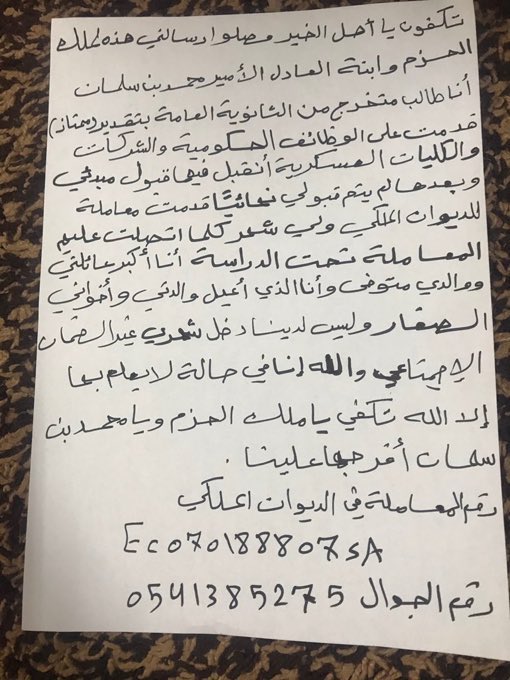 تكفون يا أهل الخير وصلوا رسالتي هذه لملك
الحزم وابنة العادل الأمير محمد بن سلمان
أنا طالب متخرج من الثانوية العامة بتقدير (ممتاز)
قدمت على الوظائف الحكومية والشركات
والكليات العسكرية أنقبل فيها قبول مبدئي
وبعدها لم يتم قبولي نهائيًا قدمت معاملة
للديوان الملكي ولي شهر كلما اتصلت عليهم
المعاملة تحت الدراسة أنا أكبر عائلتي
ووالدي متوفى وأنا الذي أعيل والدتي وأخواني
الصغار وليس لدينا دخل شهري غير الضمان
الإجتماعي والله إنا في حالة لا يعلم بها
إلا الله تكفى يا ملك الحزم ويا محمد بن
سلمان أفرجها علينا .
رقم المعاملة في الديوان الملكي
Ec070188807SA
رقم الجوال 0541385275